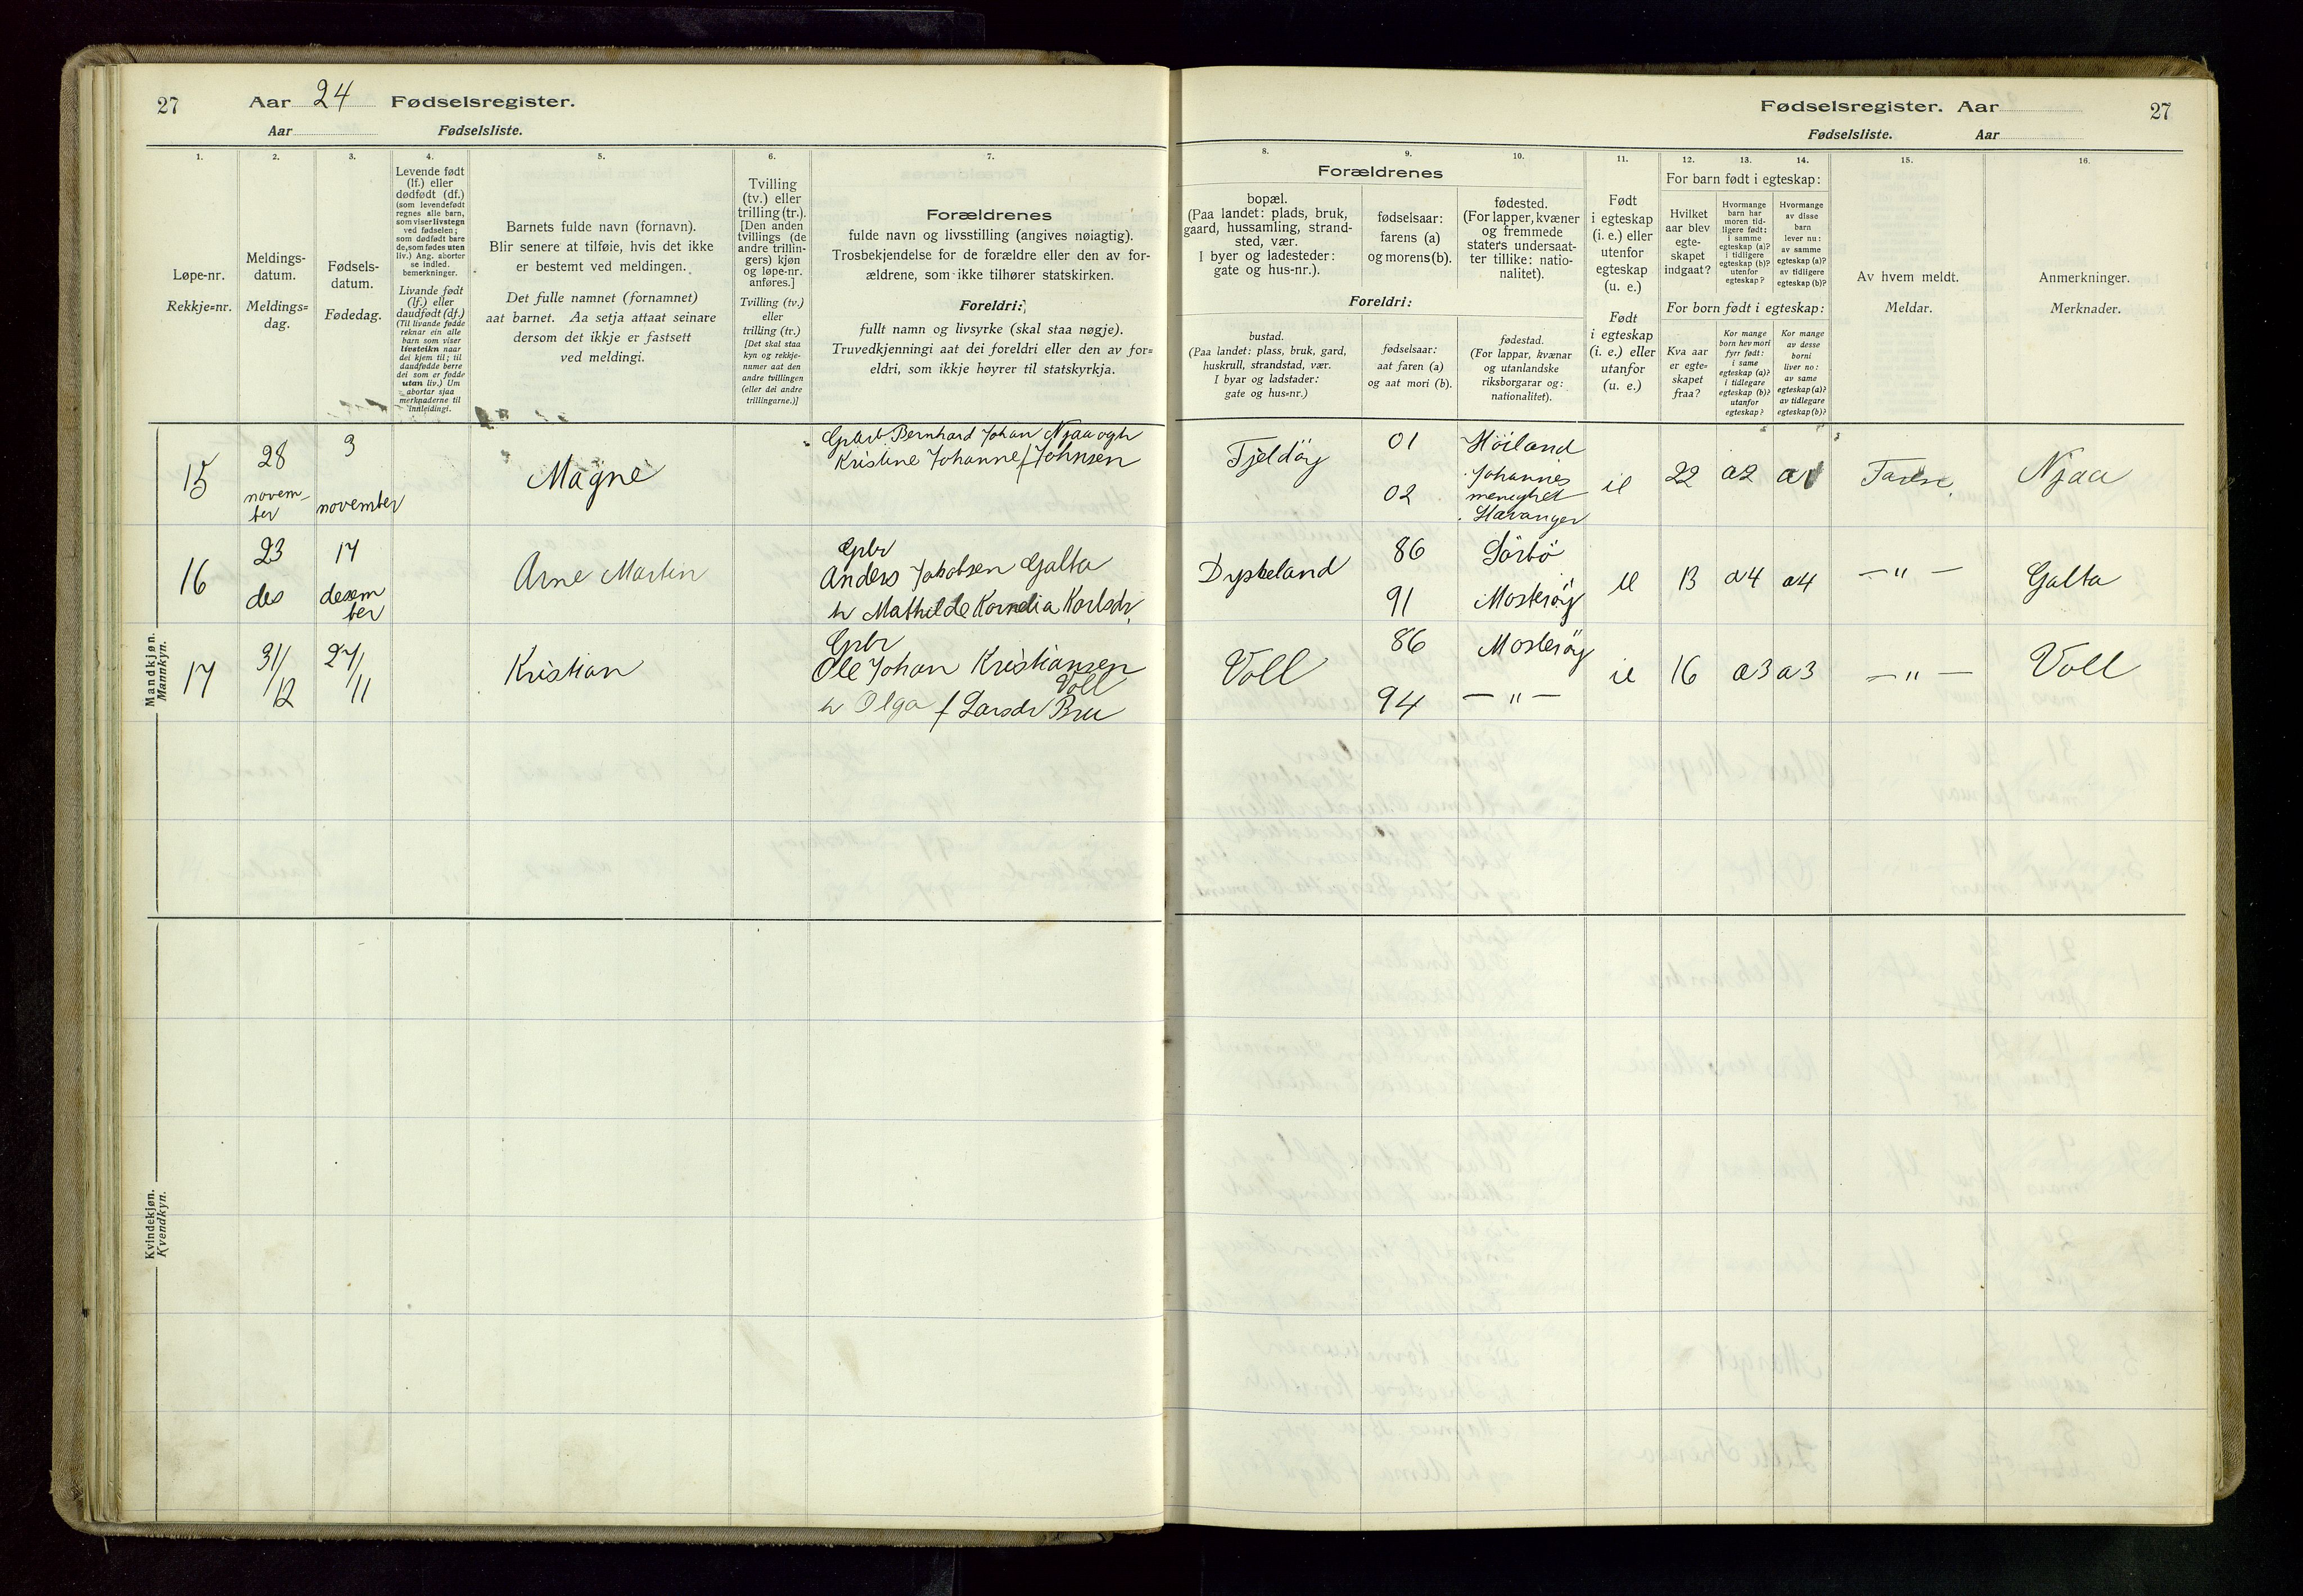 27 Aar 24 Fødselsregister.
Aar Fødselsliste.
1.
Løpe-nr.
Rekkje=nr.
2.
Meldings-
datum.
Meldings=
dag.
3.
Fødsels-
datum.
Fødedag.
4.
Levende født
(lf.) eller
dødfødt (df.)
(som levendefødt
regnes alle barn,
som viser livstegn
ved fødselen;
som dødfødt bare
de, som fødes uten
liv.) Ang. aborter
se indled.
bemerkninger.
Livande født
(lf.) eller
daudfødt (df.)
(Til livande fødde
reknar ein alle
barn som viser
livsteikn naar
dei kjem til; til
daudfødde berre
dei som er fødde
utan liv.) Um
abortar sjaa
merknaderne til
innleidingi.
5.
Barnets fulde navn (fornavn).
Blir senere at tilføie, hvis det ikke
er bestemt ved meldingen.
Det fulle namnet (fornamnet)
aat barnet. Aa setja attaat seinare
dersom det ikkje er fastsett
ved meldingi.
6.
Tvilling
(tv.) eller
trilling (tr.).
[Den anden
tvillings (de
andre trillin-
gers) kjøn
og løpe-nr.
anføres.]
Tvilling (tv.)
eller
trilling (tr.)
[Det skal staa
kyn og rekkje-
numer aat den
andre tvillingen
(eller dei andre
trillingarne.)]
7.
Forældrenes
fulde navn og livsstilling (angives nøiagtig).
Trosbekjendelse for de forældre eller den av for-
ældrene, som ikke tilhører statskirken.
Foreldri:
fullt namn og livsyrke (skal staa nøgje).
Truvedkjenningi aat dei foreldri eller den av for=
eldri, som ikkje høyrer til statskyrkja.
Mandkjøn.
Mannkyn.
15
28
novem-
ber
3
november
Magne
Gbarb Bernhard Johan Njaa og h
Kristine Johanne f Johnsen
16
23
des
17
desem
ber
Arne Martin
Gbr
Anders Jakobsen Galta
h Mathilde Kornelia Karlsdr.
17
31/
/12
27/
/11
Kristian
Gbr
Ole Johan Kristiansen
Voll
h Olga f Larsdr Bru
Kvindekjøn.
Kvendkyn.
Fødselsregister. Aar 27
Fødselsliste. Aar
8.
Forældrenes
bopæl.
(Paa landet: plads, bruk,
gaard, hussamling, strand-
sted, vær.
I byer og ladesteder:
gate og hus-nr.).
Foreldri:
bustad.
(Paa landet: plass, bruk, gard,
huskrull, strandstad, vær.
I byar og ladstader:
gate og hus=nr.)
9.
fødselsaar:
farens (a)
og morens (b).
fødselsaar:
aat faren (a)
og aat mori (b).
10.
fødested.
(For lapper, kvæner
og fremmede
staters undersaat-
ter tillike: natio-
nalitet).
fødestad.
(For lappar, kvænar
og utanlandske
riksborgarar og:
nationalitet).
11.
Født
i egteskap
(i. e.) eller
utenfor
egteskap
(u. e.)
Født
i egteskap
(i. e.) eller
utanfor
(u. e.)
12. 13. 14.
For barn født i egteskap:
Hvilket
aar blev
egte-
skapet
indgaat?
Hvormange
barn har
moren tid-
ligere født:
i samme
egteskap (a)?
i tidligere
egteskap (b)?
utenfor
egteskap?
Hvormange
av disse
barn
lever nu:
av samme
egteskap (a)?
av tidligere
egteskap (b)?
For born født i egteskap:
Kva aar
er egte=
skapet
fraa?
Kor mange
born hev mori
fyrr født:
i same
egteskap (a)?
i tidlegare
egteskap (b)?
utanfor
egteskap?
Kor mange
av desse
borni
liver no:
av same
egteskap (a)?
av tidlegare
egteskap (b)?
15.
Av hvem meldt.
Meldar.
16.
Anmerkninger.
Merknader.
Fjeldöy
01
02
Höiland
Johannes
menighet
Stavanger
ie
22
a2
a1
Faren
Njaa
Dyskeland
86
91
Sörbö
Mosteröy
ie
13
a4
a4
— " —
Galta
Voll
86
94
Mosteröy
— " —
ie
16
a3
a3
— " —
Voll